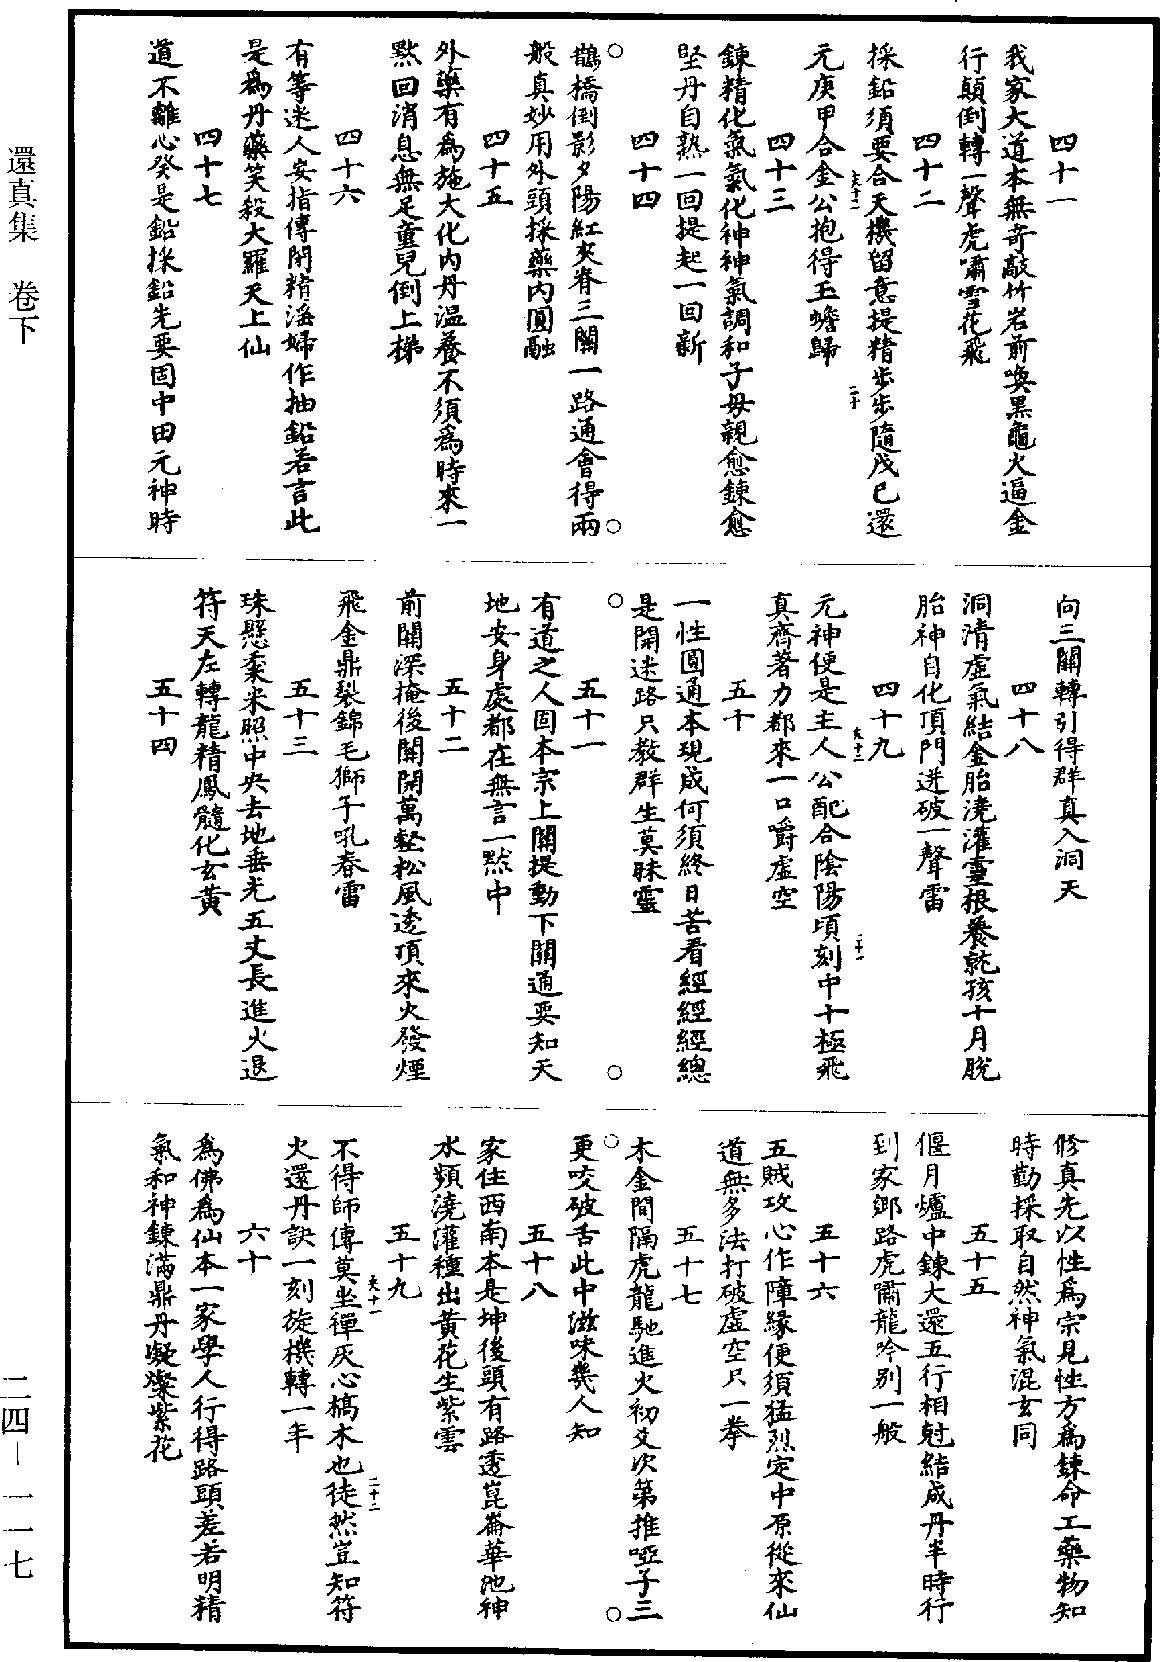 還真集　卷下
四十一
我家大道本無奇敲竹岩前喚黑龜火逼金
行顛倒轉一聲虎嘯雪花飛
四十二
採鉛須要合天機留意提精步步隨戊己還
元庚甲合金公抱得玉蟾歸
夾十二
二十
四十三
鍊精化氣氣化神神氣調和子母親愈鍊愈
堅丹自熟一回提起一回新
四十四
鵲橋倒影夕陽紅夾脊三關一路通會得兩
般真妙用外頭採藥内圓融
四十五
外藥有為施大化内丹温養不須為時來一
㸃回消息無足童兒倒上梯
四十六
有等迷人妄指傳閉精淫婦作抽鉛若言此
是為丹藥笑殺大羅天上仙
四十七
道不離心癸是鉛採鉛先要固中田元神時
向三關轉引得群真入洞天
四十八
洞清虛氣結金胎澆灌靈根養就孩十月脫
胎神自化頂門迸破一聲雷
四十九
元神便是主人公配合陰陽頃刻中十極飛
真齊著力都來一口嚼虛空
夾十二
二十一
五十
一性圓通本現成何須終日苦看經經經總
是開迷路只教群生莫昧靈
五十一
有道之人固本宗上關提動下關通要知天
地安身處都在無言一㸃中
五十二
前關深掩後關開萬壑松風透頂來火發煙
飛金鼎裂錦毛獅子吼春雷
五十三
珠懸黍米照中央去地垂光五丈長進火退
符天左轉龍精鳳髓化玄黃
五十四
修真先以性為宗見性方為鍊命工藥物知
時勤採取自然神氣混玄同
五十五
偃月爐中鍊大還五行相尅結成丹半時行
到家鄉路虎嘯龍吟别一般
五十六
五賊攻心作障緣便須猛烈定中原從來仙
道無多法打破虛空只一拳
五十七
木金間隔虎龍馳進火初爻次第推啞子三
更咬破舌此中滋味幾人知
五十八
家住西南本是坤後頭有路透崑崙華池神
水頻澆灌種出黃花生紫雲
五十九
不得師傳莫坐禪灰心槁木也徒然豈知符
火還丹訣一刻旋機轉一年
夾十一
二十二
六十
為佛為仙本一家學人行得路頭差若明精
氣和神鍊滿鼎丹凝燦紫花
二四—一一七